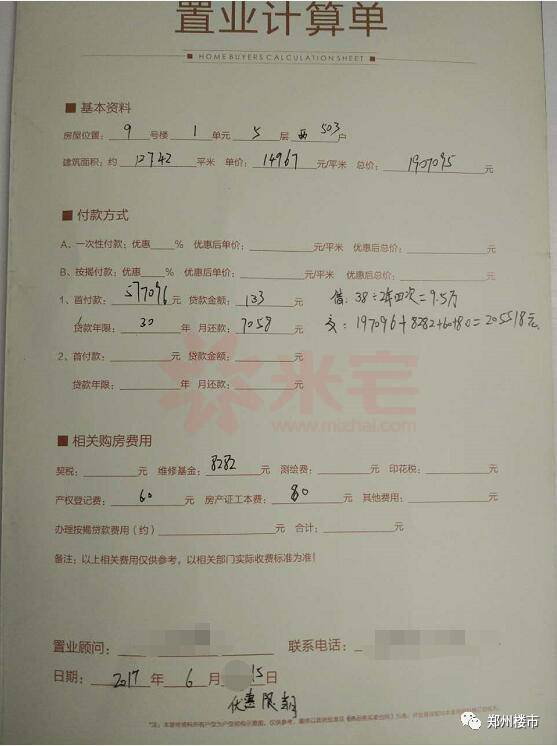 置业计算单
HOME BUYERS CALCULATION SHEET
基本资料
房屋位置: 9 号楼 1 单元 5 层 西 503 户
建筑面积: 约 127.42 平米 单价: 14967 元/平米 总价: 1907095 元
付款方式
A、一次性付款: 优惠 % 优惠后单价: 元/平米 优惠后总价: 元
B、按揭付款: 优惠 % 优惠后单价: 元/平米 优惠后总价: 元
1、首付款: 577096 元 贷款金额: 133 元 借: 38÷2年四次=9.5万
贷款年限: 30 年 月还款: 7058 元 交: 197096+8282+60+80=205518元
2、首付款: 元 贷款金额: 元
贷款年限: 年 月还款: 元
米宅
www.mizhai.com
相关购房费用
契税: 元 维修基金: 8282 元 测绘费: 元 印花税: 元
产权登记费: 60 元 房产证工本费: 80 元 其他费用: 元
办理按揭贷款费用(约) 元 合计: 元
备注: 以上相关费用仅供参考, 以相关部门实际收费标准为准!
置业顾问: 联系电话:
日期: 2017 年 6 月 15 日
优惠限期
郑州楼市